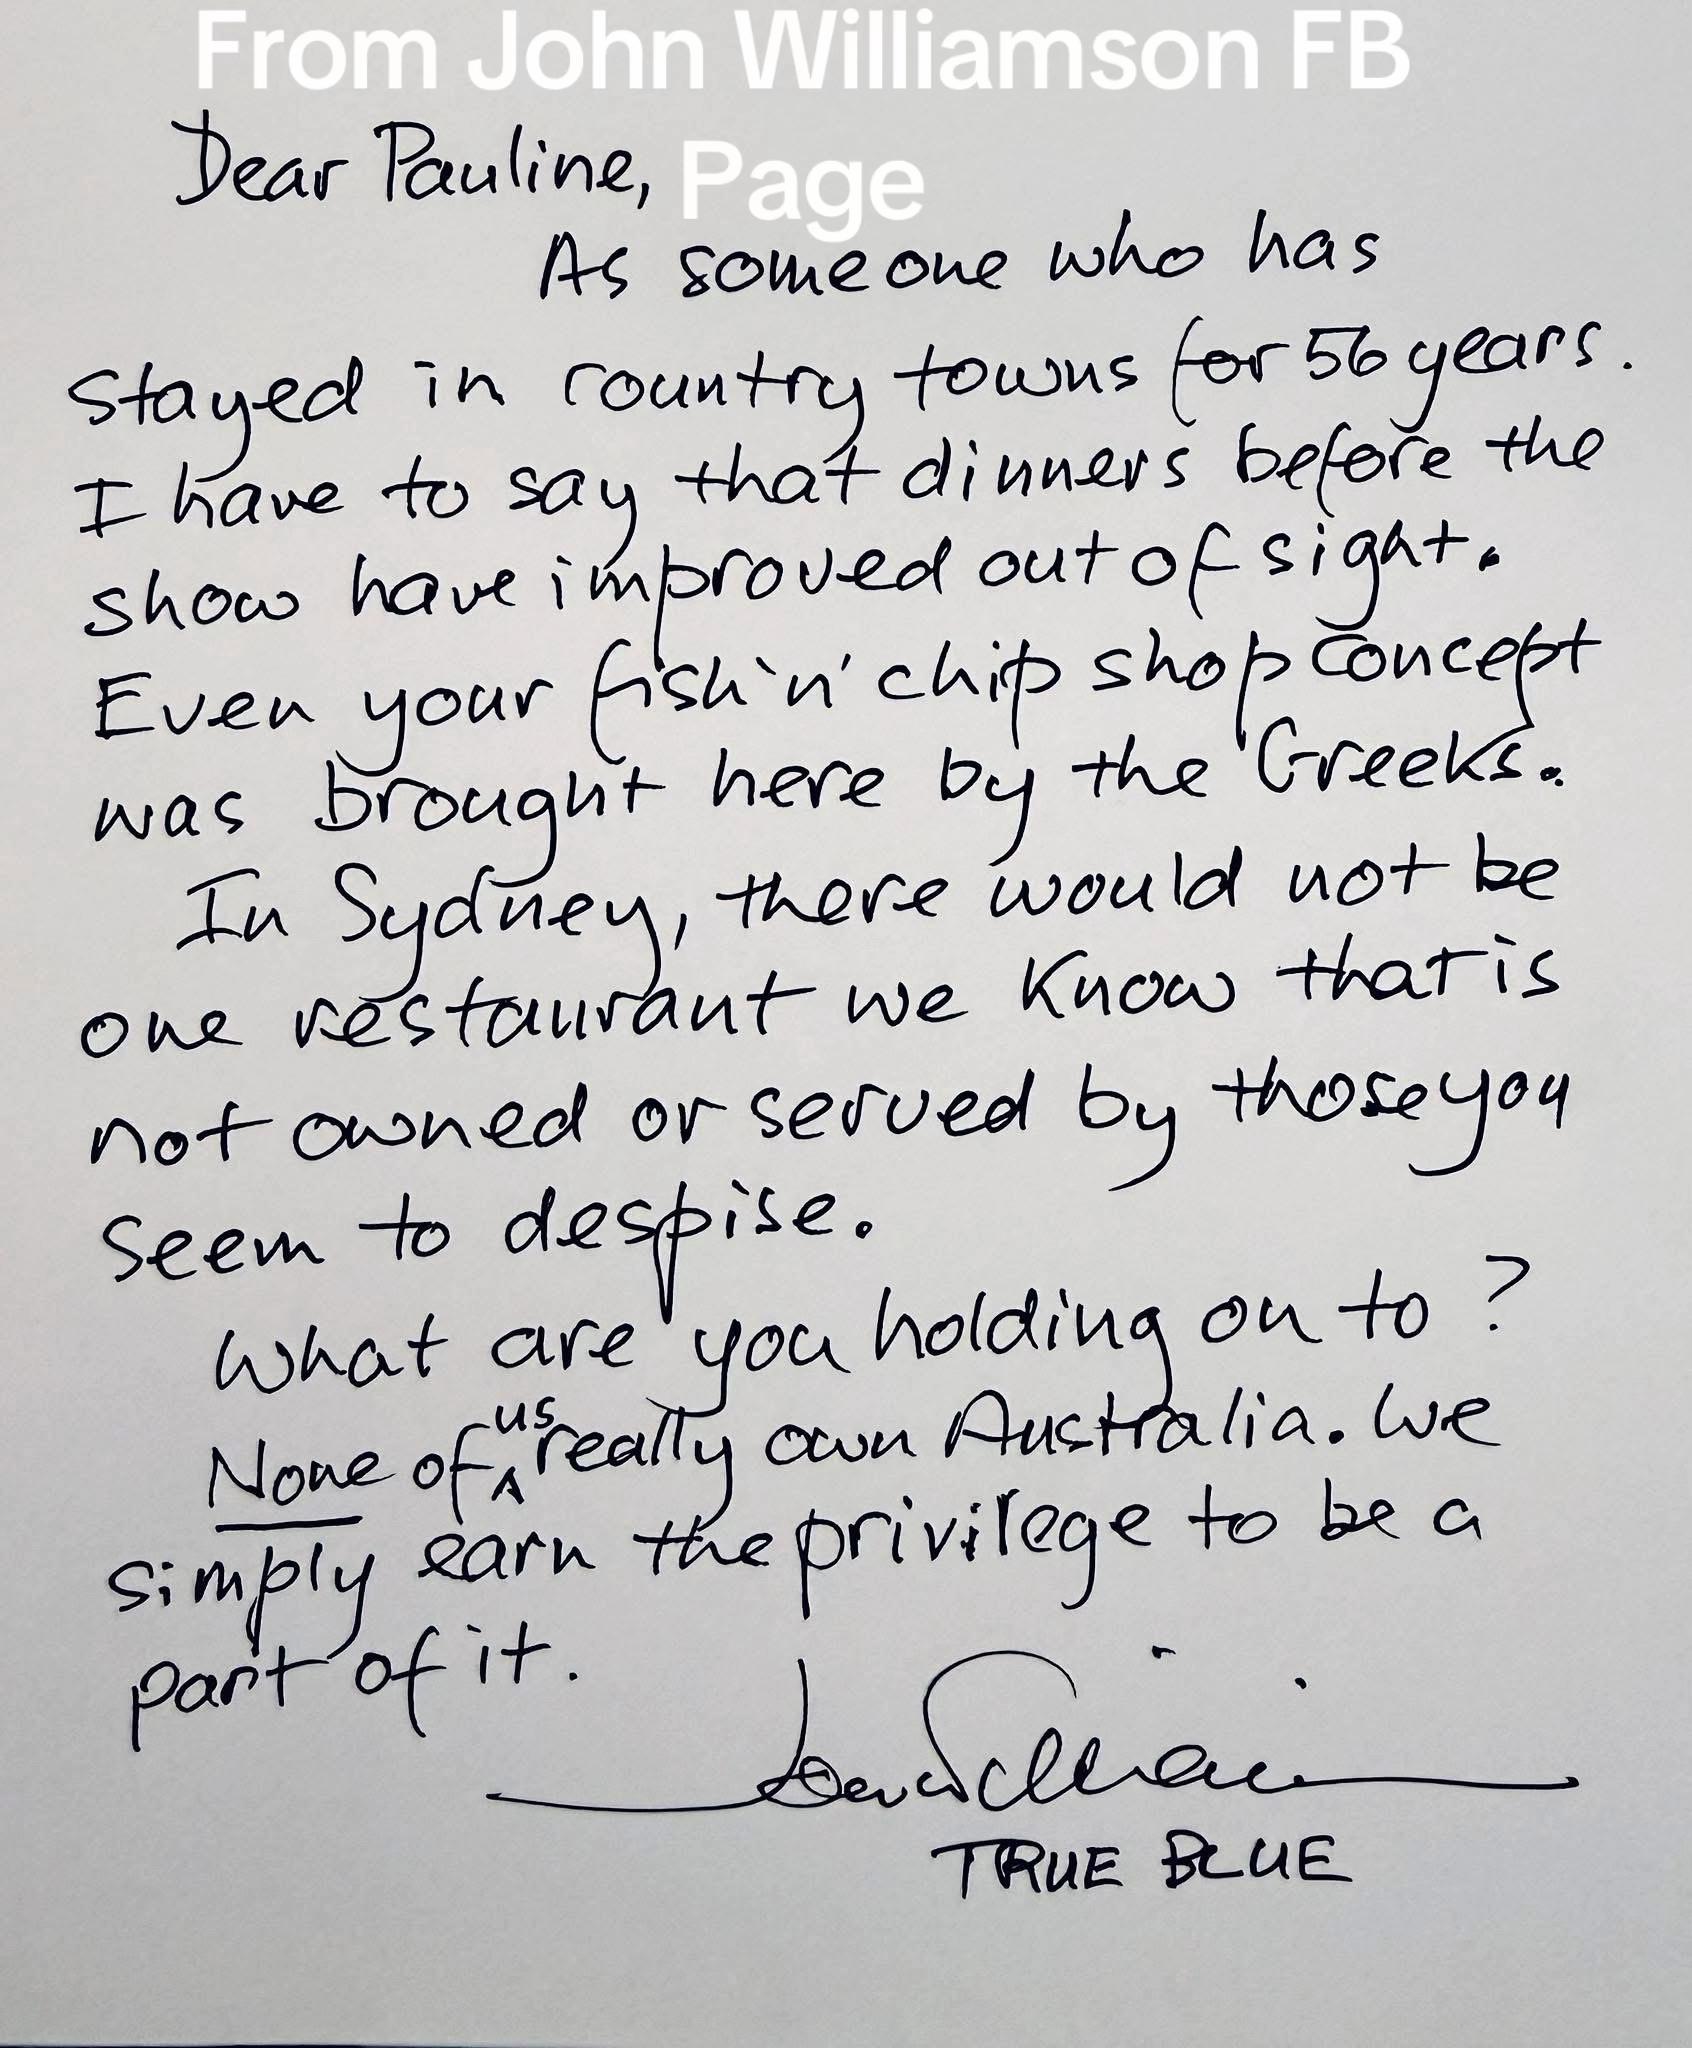 From John Williamson FB
Page
Dear Pauline,
As someone who has
stayed in country towns for 56 years.
I have to say that dinners before the
show have improved out of sight.
Even your fish 'n' chip shop concept
was brought here by the Greeks.
In Sydney, there would not be
one restaurant we know that is
not owned or served by those you
seem to despise.
What are you holding on to?
None of us really own Australia. We
simply earn the privilege to be a
part of it.
TRUE BLUE